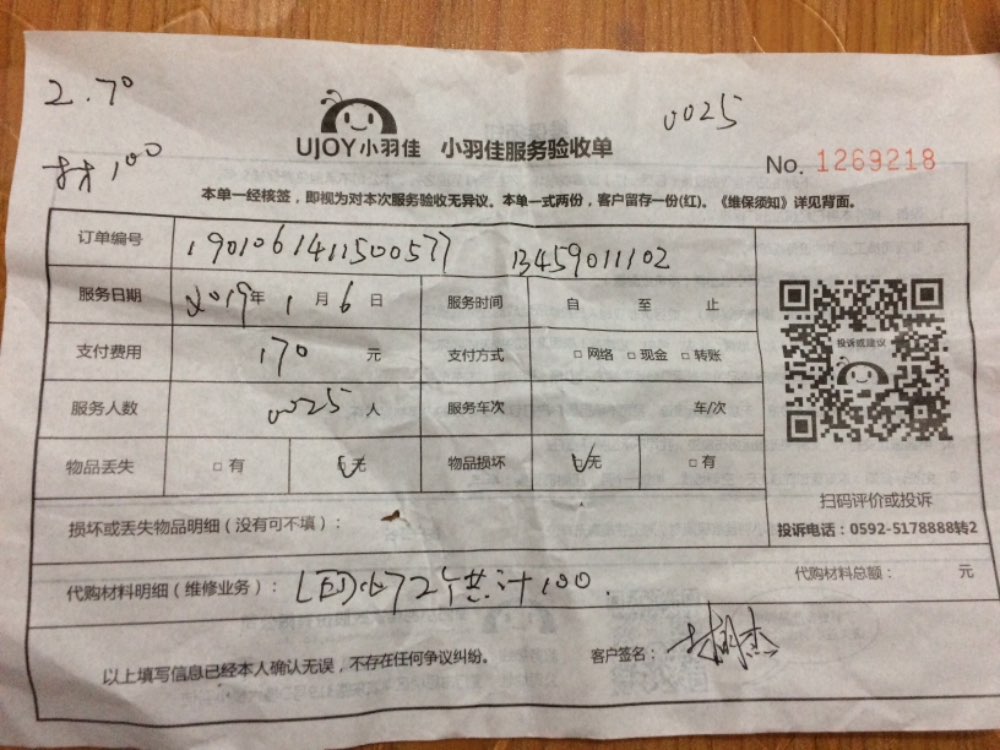 2.70
0025
UJOY小羽佳 小羽佳服务验收单
材100
No. 1269218
本单一经核签，即视为对本次服务验收无异议。本单一式两份，客户留存一份(红)。《维保须知》详见背面。
订单编号 1901061411500577 13459011102
服务日期 2019年 1月6日 服务时间 自 至 止
投诉或建议
支付费用 170 元 支付方式 □网络 □现金 □转账
服务人数 0025人 服务车次 车/次
物品丢失 □有 □无 物品损坏 □无 □有
扫码评价或投诉
损坏或丢失物品明细（没有可不填）：
投诉电话：0592-5178888转2
代购材料明细（维修业务）： LED 2个共计100.
代购材料总额： 元
以上填写信息已经本人确认无误，不存在任何争议纠纷。 客户签名：